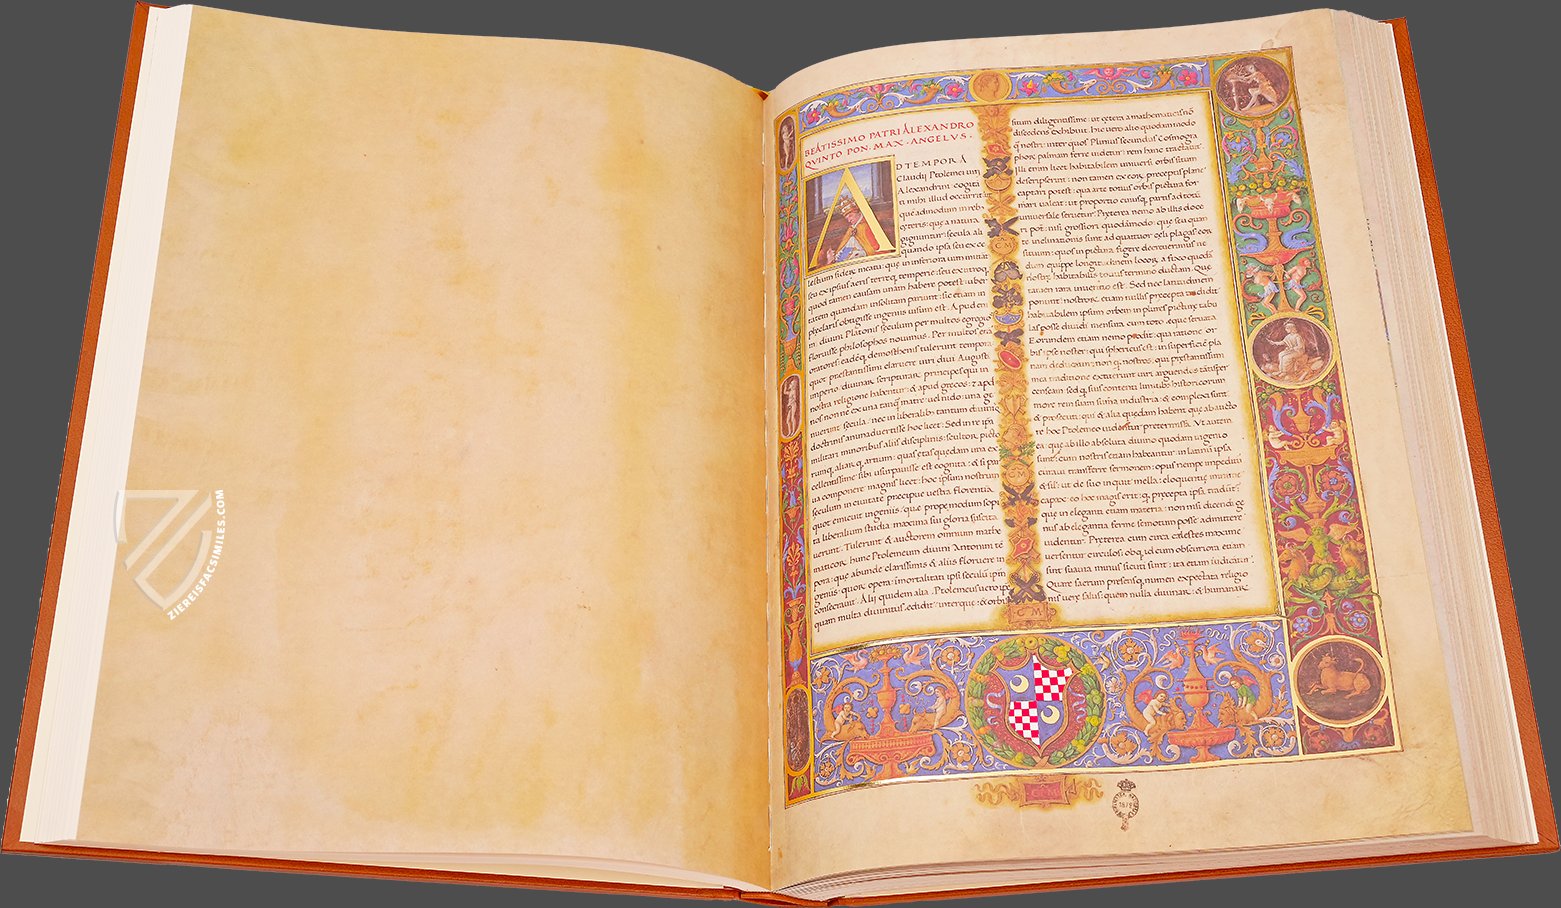 BEATISSIMO PATRI ALEXANDRO
QVINTO PON. MAX. ANGELVS.
AD TEMPORA
Claudij Ptolemei uiri
Alexandrini: cogita
ti mihi illud occurrit
que admodum in reb
ceteris: que a natura
gignuntur: secula ali
quando ipsa seu ex ce
lestium siderum meatu: que in inferiora
seu ex ipsius aeris terreq temperie: seu ex utroq
quod tamen causam unam habere potest: uber
tatem quandam insolitam pariunt: sic etiam in
preclaris obtigisse ingenijs uisum est. Apud eni
diuini Platonis seculum per multos egregios
floruisse philosophos nouimus. Per multos
oratores: eadeq demosthenis tulerunt tempora
quot prestantissimi claruere uiri diui Augusti
imperio: diuinar scripturar principes qui in
nostra religione habentur: & apud grecos: & apd
nos
nuerunt secula: nec in liberalib tantum
doctrinis animaduertisse hoc licet: Sed in re ipsa
militari minoribus alijs disciplinis: scultor picto
rumq aliar q artium: quas etas quedam una ex
cellentissime sibi usurpauisse est cognita: & si par
ua componere magnis licet: hoc ipsum nostrum
seculum in ciuitate precipue uestra florentia
quot emicuit ingenijs: que propemodum sopi
ta liberalium studia maxima sui gloria suscita
uerunt. Tulerunt & auctorem omnium mathe
maticor hunc Ptolemeum diuini Antonini te
pora: que abunde clarissimis & alijs floruere in
genijs: quor opera: immortalitati ipsi seculu
consecrarut. Alij quidem alia. Ptolemeus uero
quam multa diuinitus edidit: interque & orbis
situm diligentissime: ut cetera a mathematicis no
discedens exhibuit. hic uero alio quodam modo
q nostri: inter quos Plinius secundus Cosmogra
phor palmam ferre uidetur: rem hanc tractauit.
Illi enim licet habitabilem uniuersi orbis situm
descripserint: non tamen ex eor preceptis plane
captari potest: qua arte totius orbis pictura for
mari ualeat: ut proportio cuiusq partis ad totu
uniuersale seruetur. Preterea nemo ab illis doce
ri pot: nisi grossiori quodamodo: que seu quan
te inclinationes sunt ad quattuor celi plagas eor
situum: quos in pictura figere decreuerimus
dum quippe longitudinem locor a fixo quoda
nostre habitabilis termino ductam. Que
tamen rara uniuerso est. Sed nec latitudinem
ponunt: nostror etiam nullus precepta tradidit
habitabilem ipsum orbem in plures picture tabu
las posse diuidi mensura cum toto eque seruata
Eorundem etiam nemo prodit: qua ratione or
bis: ipse noster: qui sphericus est: in superficie pla
nam deducatur: non q nostros: qui prestantissimi
mea traditione extiterunt uiri arguendos
censeam: sed q suis contenti limitib historicorum
more rem suam summa industria: & complexi sunt
& prosecuti: qui & alia quedam habent que ab aucto
re hoc Ptolemeo uidentur pretermissa. Vt autem
ea: que ab illo absoluta diuino quodam ingenio
sunt: cum nostris etiam habeantur: in latinu ipsa
curaui transferre sermonem: opus nempe impediti
& sit: ut de suo inquit mella: eloquentie minime
capax: eo hoc magis erit: q precepta ipsa tradunt
que in eleganti etiam materia: non nisi dicendi ge
nus ab elegantia ferme semotum posse admittere
uidentur. Preterea cum circa celestes maxime
uersentur circulos obq id cum obscuriora etiam
sint suauia minus sicuti sint: ita etiam iudicatur.
Quare sacrum presensq numen expectata religio
nis uere salus: quem nulla diuinar: & humanar
CM
CM
CM
1879
ZIEREISFACSIMILES.COM